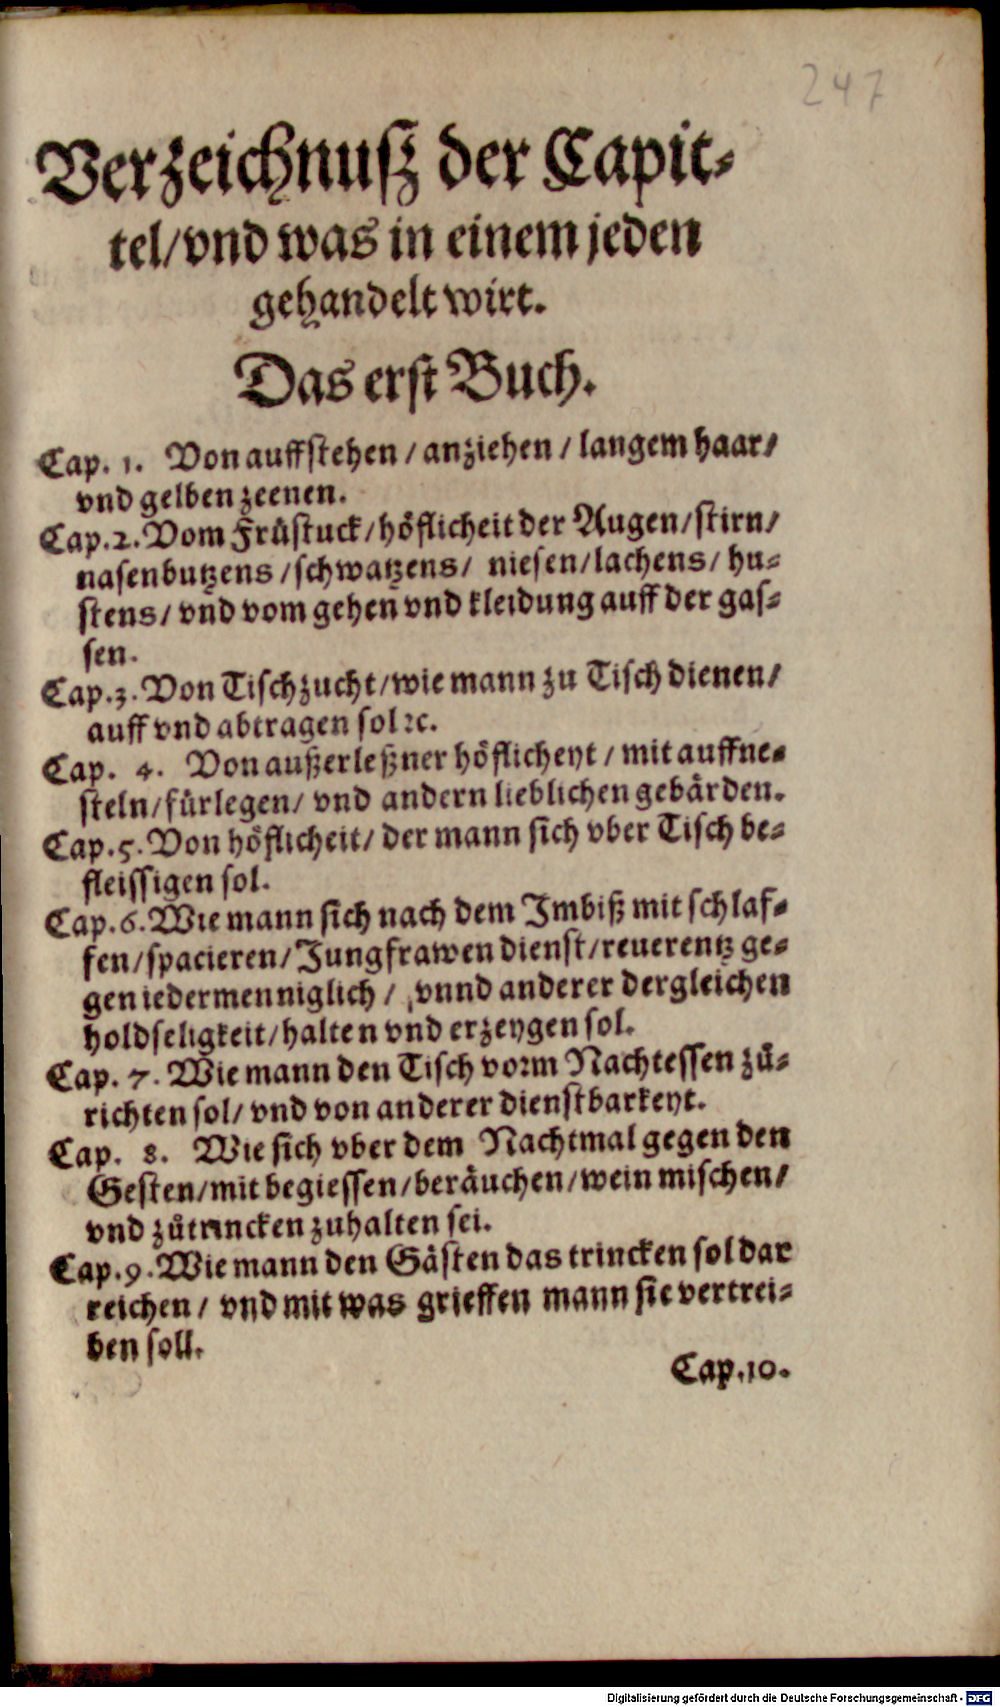 247
Verzeichnuſz der Capit⸗
tel/vnd was in einem jeden
gehandelt wirt.
Das erſt Buch.
Cap. 1. Von auffſtehen / anziehen / langem haar/
vnd gelben zeenen.
Cap.2. Vom Früſtuck/höflicheit der Augen/ſtirn/
naſenbutzens /ſchwatzens/ nieſen/lachens/ hu⸗
ſtens/ vnd vom gehen vnd kleidung auff der gaſ⸗
ſen.
Cap.3. Von Tiſchzucht/wie mann zu Tiſch dienen/
auff vnd abtragen ſol ꝛc.
Cap. 4. Von außerleßner höflicheyt / mit auffne⸗
ſteln/fürlegen/ vnd andern lieblichen gebärden.
Cap.5. Von höflicheit/ der mann ſich vber Tiſch be⸗
fleiſſigen ſol.
Cap.6. Wie mann ſich nach dem Imbiß mit ſchlaf⸗
fen/ſpacieren/Jungfrawen dienſt/reuerentz ge⸗
gen iedermenniglich / vnnd anderer dergleichen
holdſeligkeit/halten vnd erzeygen ſol.
Cap. 7. Wie mann den Tiſch voꝛm Nachteſſen zů⸗
richten ſol/ vnd von anderer dienſtbarkeyt.
Cap. 8. Wie ſich vber dem Nachtmal gegen den
Geſten/mit begieſſen/beräuchen/wein miſchen/
vnd zůtrincken zuhalten ſei.
Cap.9. Wie mann den Gäſten das trincken ſol dar
reichen / vnd mit was grieffen mann ſie vertrei⸗
ben ſoll.
Cap.10.
Digitalisierung gefördert durch die Deutsche Forschungsgemeinschaft - DFG